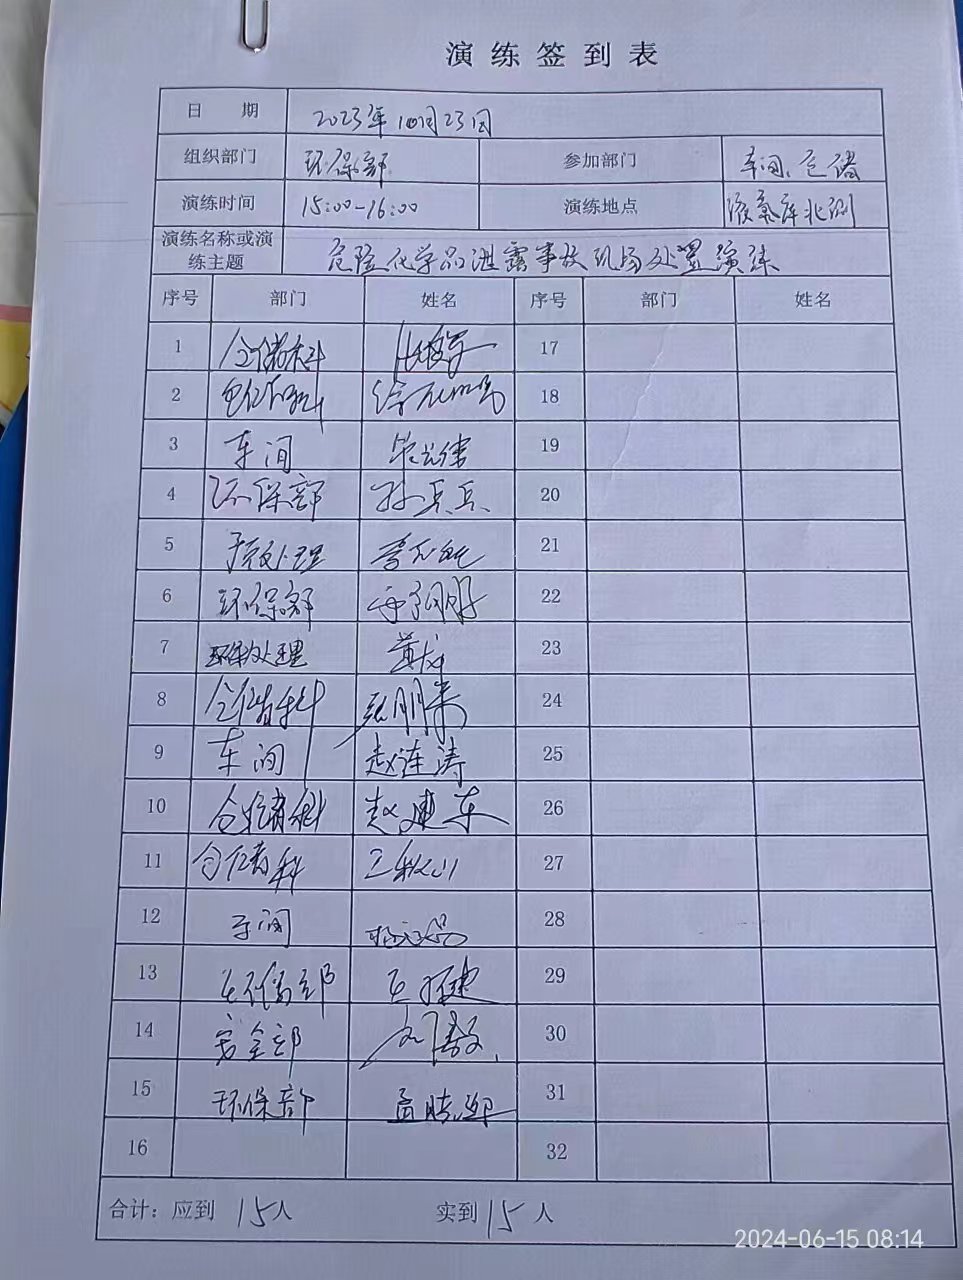 演练签到表
日 期 2023年10月23日
组织部门 环保部 参加部门 车间、仓储
演练时间 15:00-16:00 演练地点 液氯库北侧
演练名称或演
练主题 危险化学品泄露事故现场处置演练
序号 部门 姓名 序号 部门 姓名
1 仓储科 17
2 仓储科 18
3 车间 19
4 环保部 孙兵兵 20
5 预处理 21
6 环保部 22
7 环保处理 黄龙 23
8 仓储科 24
9 车间 赵连涛 25
10 仓储科 赵建东 26
11 仓储科 27
12 车间 28
13 29
14 安全部 30
15 环保部 31
16 32
合计：应到 15人 实到 15 人
2024-06-15 08:14